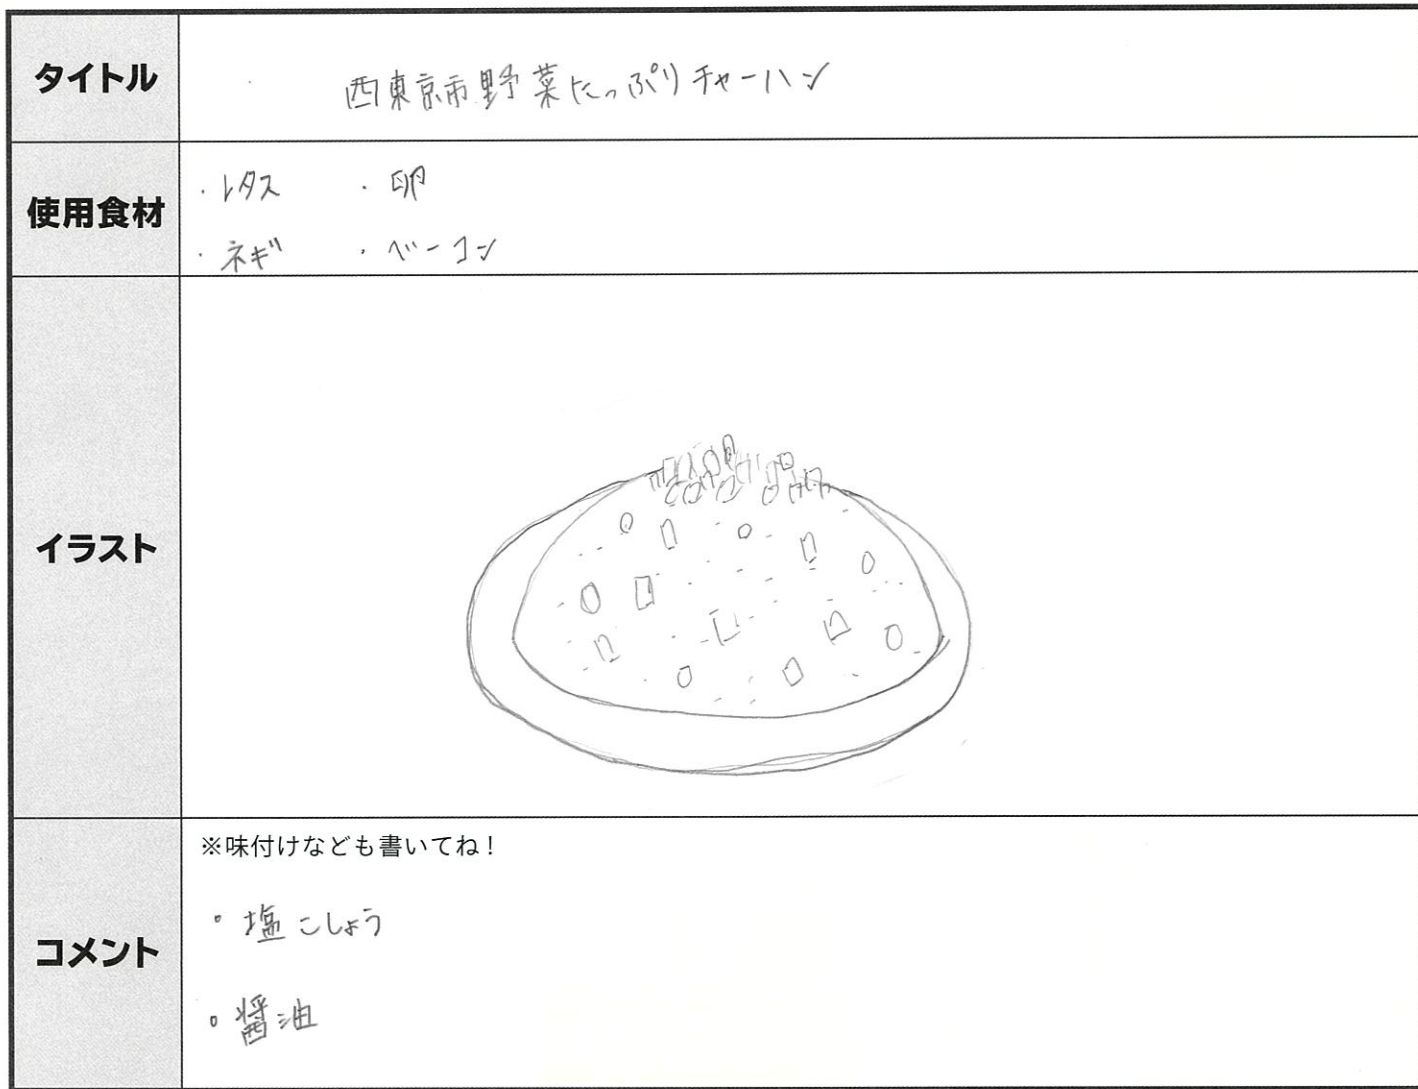 タイトル
西東京市野菜たっぷりチャーハン
使用食材
・レタス ・卵
・ネギ ・ベーコン
イラスト
コメント
※味付けなども書いてね！
・塩こしょう
・醤油